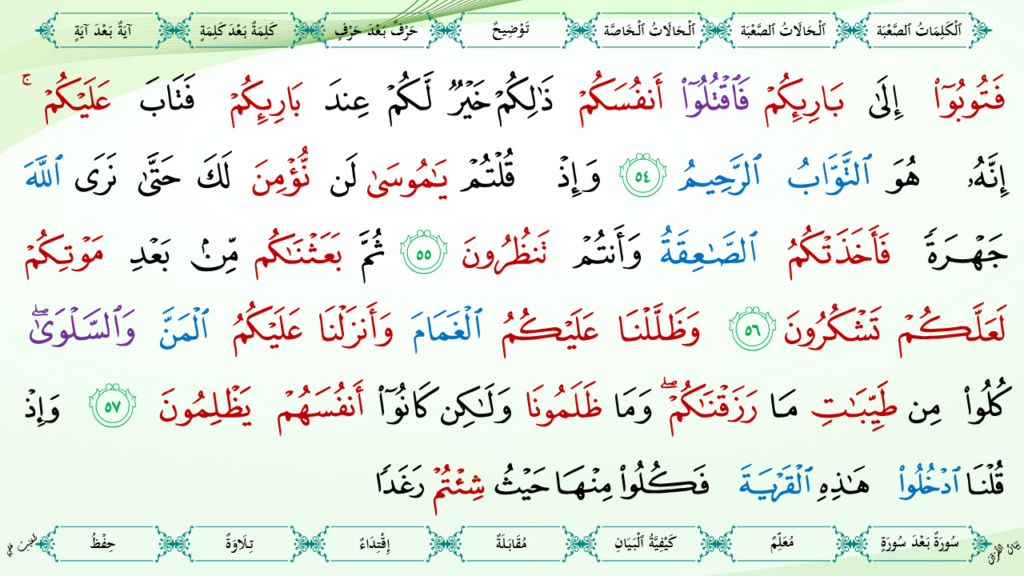 اَلْكَلِمَاتُ الصَّعْبَة
اَلْحَالَاتُ الصَّعْبَة
اَلْحَالَاتُ الْخَاصَّة
تَوْضِيحٌ
حَرْفٌ بَعْدَ حَرْفٍ
كَلِمَةٌ بَعْدَ كَلِمَةٍ
آيَةٌ بَعْدَ آيَةٍ
فَتُوبُوٓاْ إِلَىٰ بَارِئِكُمْ فَٱقْتُلُوٓاْ أَنفُسَكُمْ ذَٰلِكُمْ خَيْرٌ لَّكُمْ عِندَ بَارِئِكُمْ فَتَابَ عَلَيْكُمْ ۚ
إِنَّهُۥ هُوَ ٱلتَّوَّابُ ٱلرَّحِيمُ ٥٤ وَإِذْ قُلْتُمْ يَٰمُوسَىٰ لَن نُّؤْمِنَ لَكَ حَتَّىٰ نَرَى ٱللَّهَ
جَهْرَةً فَأَخَذَتْكُمُ ٱلصَّٰعِقَةُ وَأَنتُمْ تَنظُرُونَ ٥٥ ثُمَّ بَعَثْنَٰكُم مِّنۢ بَعْدِ مَوْتِكُمْ
لَعَلَّكُمْ تَشْكُرُونَ ٥٦ وَظَلَّلْنَا عَلَيْكُمُ ٱلْغَمَامَ وَأَنزَلْنَا عَلَيْكُمُ ٱلْمَنَّ وَٱلسَّلْوَىٰ ۖ
كُلُواْ مِن طَيِّبَٰتِ مَا رَزَقْنَٰكُمْ ۖ وَمَا ظَلَمُونَا وَلَٰكِن كَانُوٓاْ أَنفُسَهُمْ يَظْلِمُونَ ٥٧ وَإِذْ
قُلْنَا ٱدْخُلُواْ هَٰذِهِ ٱلْقَرْيَةَ فَكُلُواْ مِنْهَا حَيْثُ شِئْتُمْ رَغَدًا
سُورَةٌ بَعْدَ سُورَةٍ
مُعَلِّمٌ
كَيْفِيَّةُ الْبَيَانِ
مُقَابَلَةٌ
إِقْتِدَاءٌ
تِلَاوَةٌ
حِفْظٌ